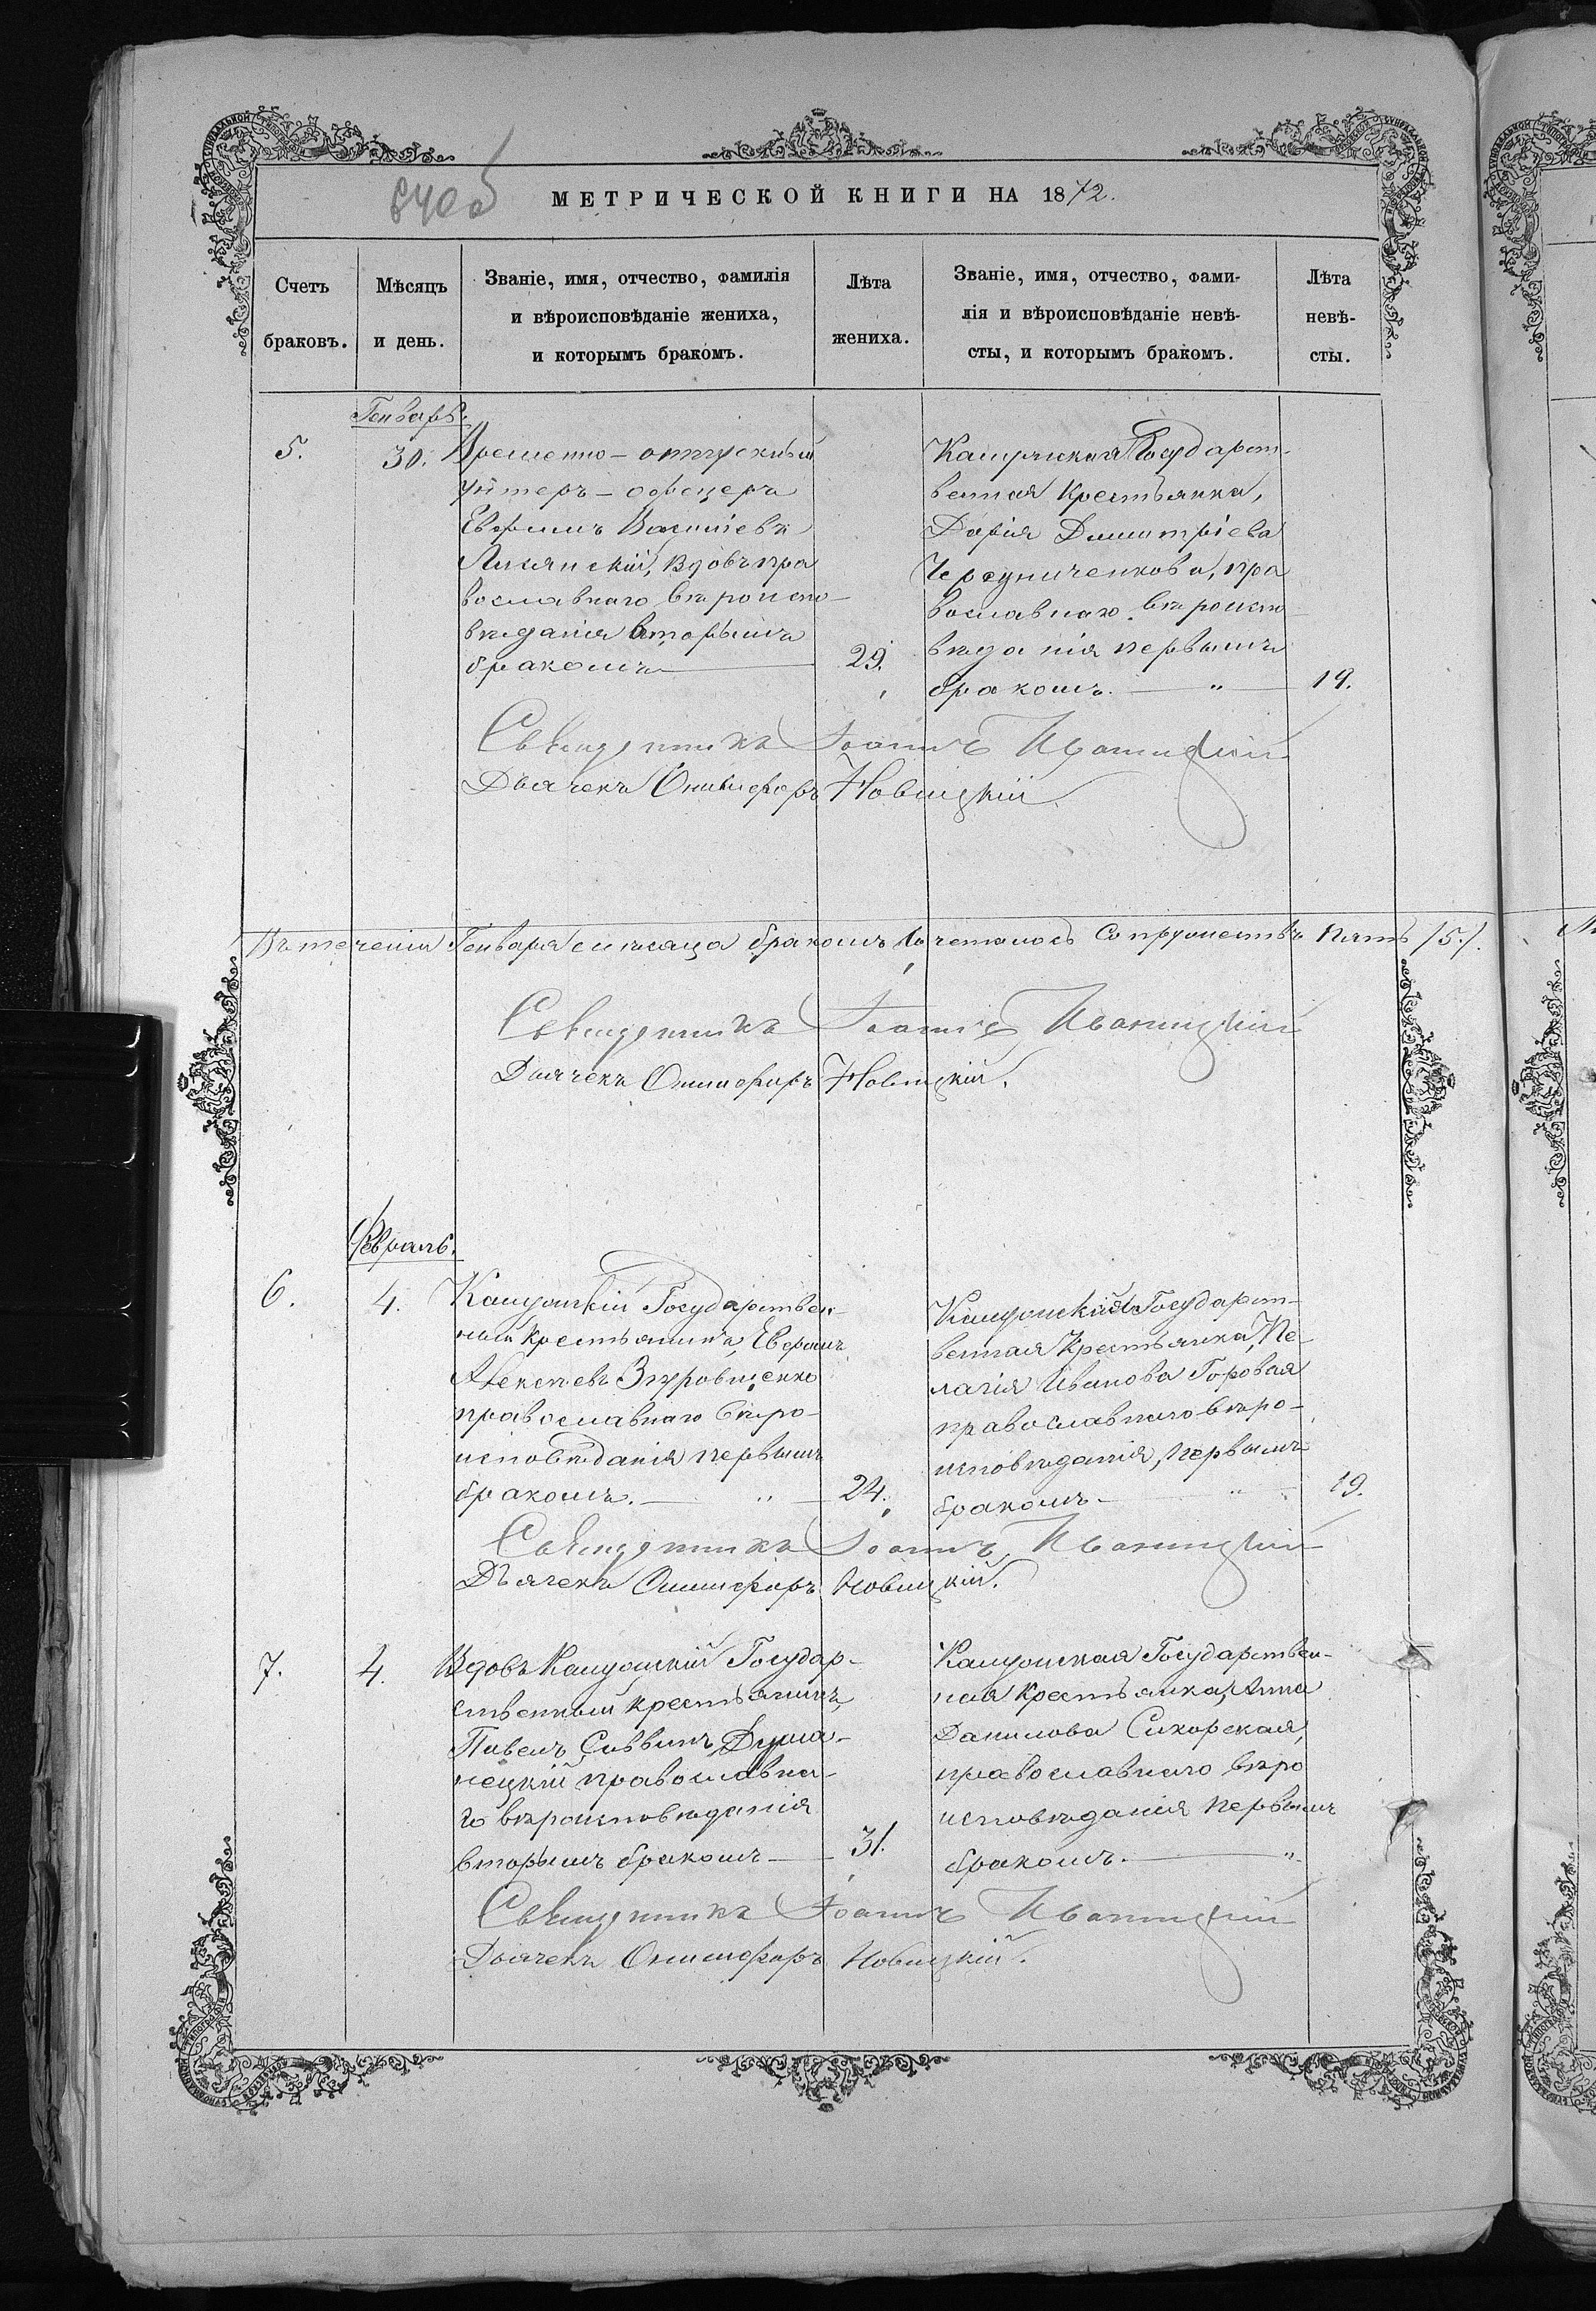 840об
МЕТРИЧЕСКОЙ КНИГИ НА 1872.
Счетъ браковъ.
Мѣсяцъ и день.
Званіе, имя, отчество, фамилія
и вѣроисповѣданіе жениха,
и которымъ бракомъ.
Лѣта жениха.
Званіе, имя, отчество, фами-
лія и вѣроисповѣданіе невѣ-
сты, и которымъ бракомъ.
Лѣта невѣ-
сты.
Генварь.
5.
30.
Временно-отпускный
унтеръ-офицеръ
Евфимъ
вдовъ пра
вославнаго вѣроиспо-
вѣданія вторымъ
бракомъ
29.
Государст-
венная Крестьянка,
Дарія Димитріева
Чередниченкова, пра
вославнаго вѣроиспо
вѣданія первымъ
бракомъ. — " —
19.
Священникъ Іоаннъ Иваницкій
Дьячекъ Онисифоръ Новицкій.
Въ теченіи Генваря мѣсяца бракомъ сочеталось супружествъ пять /5./.
Священникъ Іоаннъ Иваницкій
Дьячекъ Онисифоръ Новицкій.
Февраль.
6.
4.
Государствен-
ный крестьянинъ, Евфимъ
Алексѣевъ
православнаго вѣро-
исповѣданія первымъ
бракомъ. — " —
24.
Государст-
венная Крестьянка, Пе-
лагія Иванова Горовая
православнаго вѣро-
исповѣданія, первымъ
бракомъ — " —
19.
Священникъ Іоаннъ Иваницкій
Дьячекъ Онисифоръ Новицкій.
7.
4.
Вдовъ Государ-
ственный крестьянинъ,
Павелъ Саввинъ Дума-
нецкій православна-
го вѣроисповѣданія
вторымъ бракомъ —
31.
Государствен-
ная крестьянка, Анна
Данилова Сикорская,
православнаго вѣро
исповѣданія первымъ
бракомъ. — "
Священникъ Іоаннъ Иваницкій
Дьячекъ Онисифоръ Новицкій.